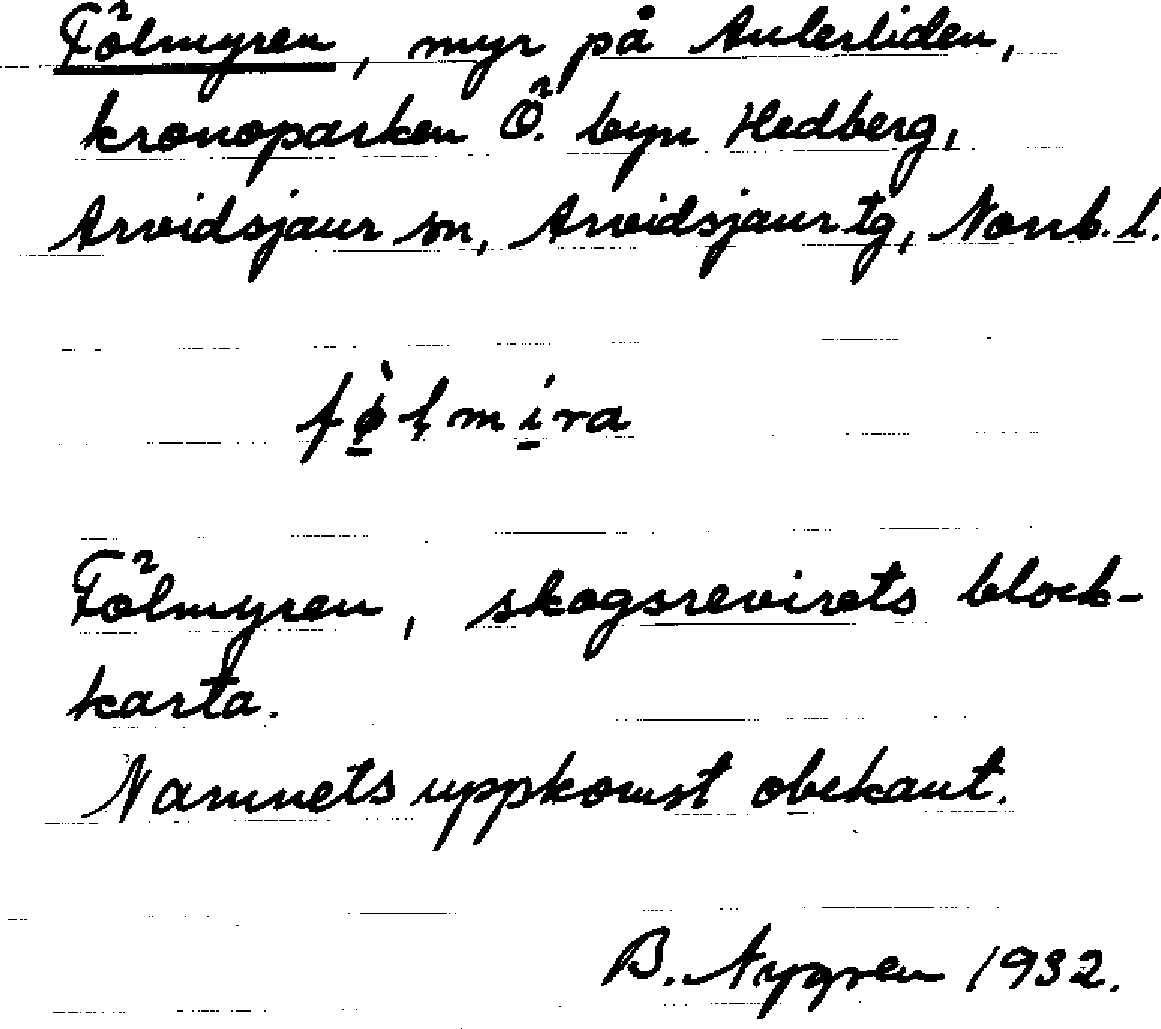 Fölmyren, myr på Auberliden,
kronoparken Ö. byn Hedberg,
Arvidsjaur sn, Arvidsjaur tg, Norrb. l.
fø̀lmíra
Fölmyren, skogsrevirets block-
karta.
Namnets uppkomst obekant.
B. Nygren 1932.